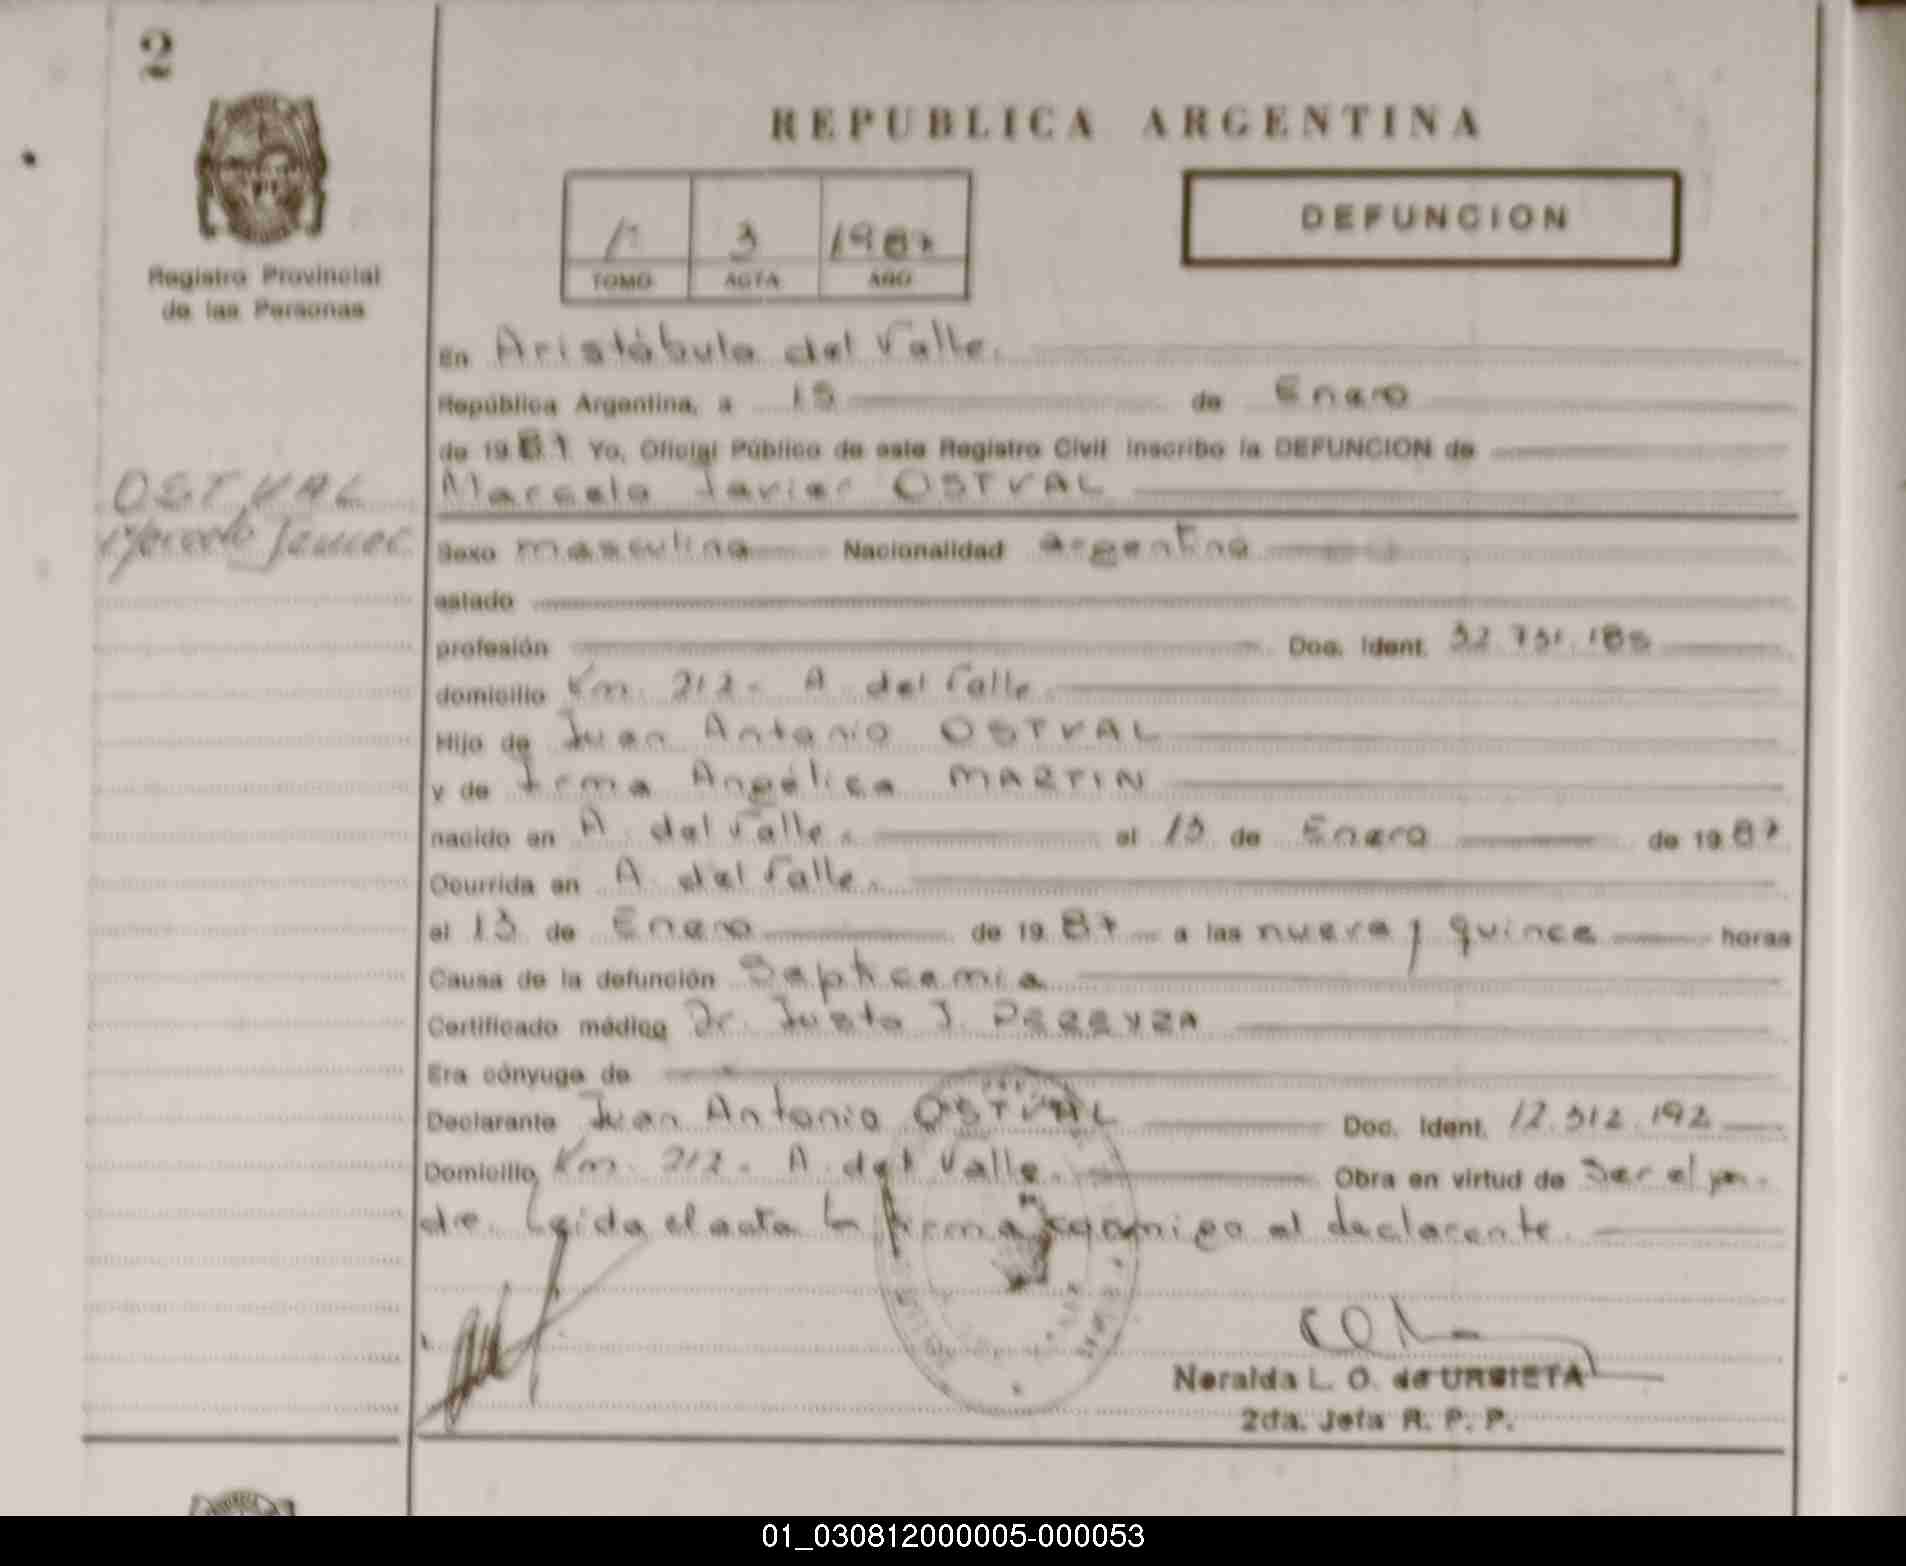 2
REPUBLICA ARGENTINA
DEFUNCION
1º 3 1987
TOMO ACTA AÑO
Registro Provincial
de las Personas
En Aristóbulo del Valle.
República Argentina, a 15 de Enero
de 1987 Yo, Oficial Público de este Registro Civil inscribo la DEFUNCION de
OSTVAL
Marcelo Javier
Marcelo Javier OSTVAL
Sexo masculino Nacionalidad argentino
estado
profesión Doc. Ident. 32.731.185
domicilio Km. 212 - A. del Valle.
Hijo de Juan Antonio OSTVAL
y de Irma Angélica MARTIN
nacido en A. del Valle. el 13 de Enero de 1987
Ocurrida en A. del Valle.
el 13 de Enero de 1987 a las nueve y quince horas
Causa de la defunción Septicemia
Certificado médico Dr. Justo J. PEREYRA
Era cónyuge de
Declarante Juan Antonio OSTVAL Doc. Ident. 12.312.192
Domicilio Km. 212 - A. del Valle. Obra en virtud de Ser el pa-
dre. Leida el acta la firma conmigo el declarante.
Neralda L. O. de URBIETA
2da. Jefa R. P. P.
01_030812000005-000053